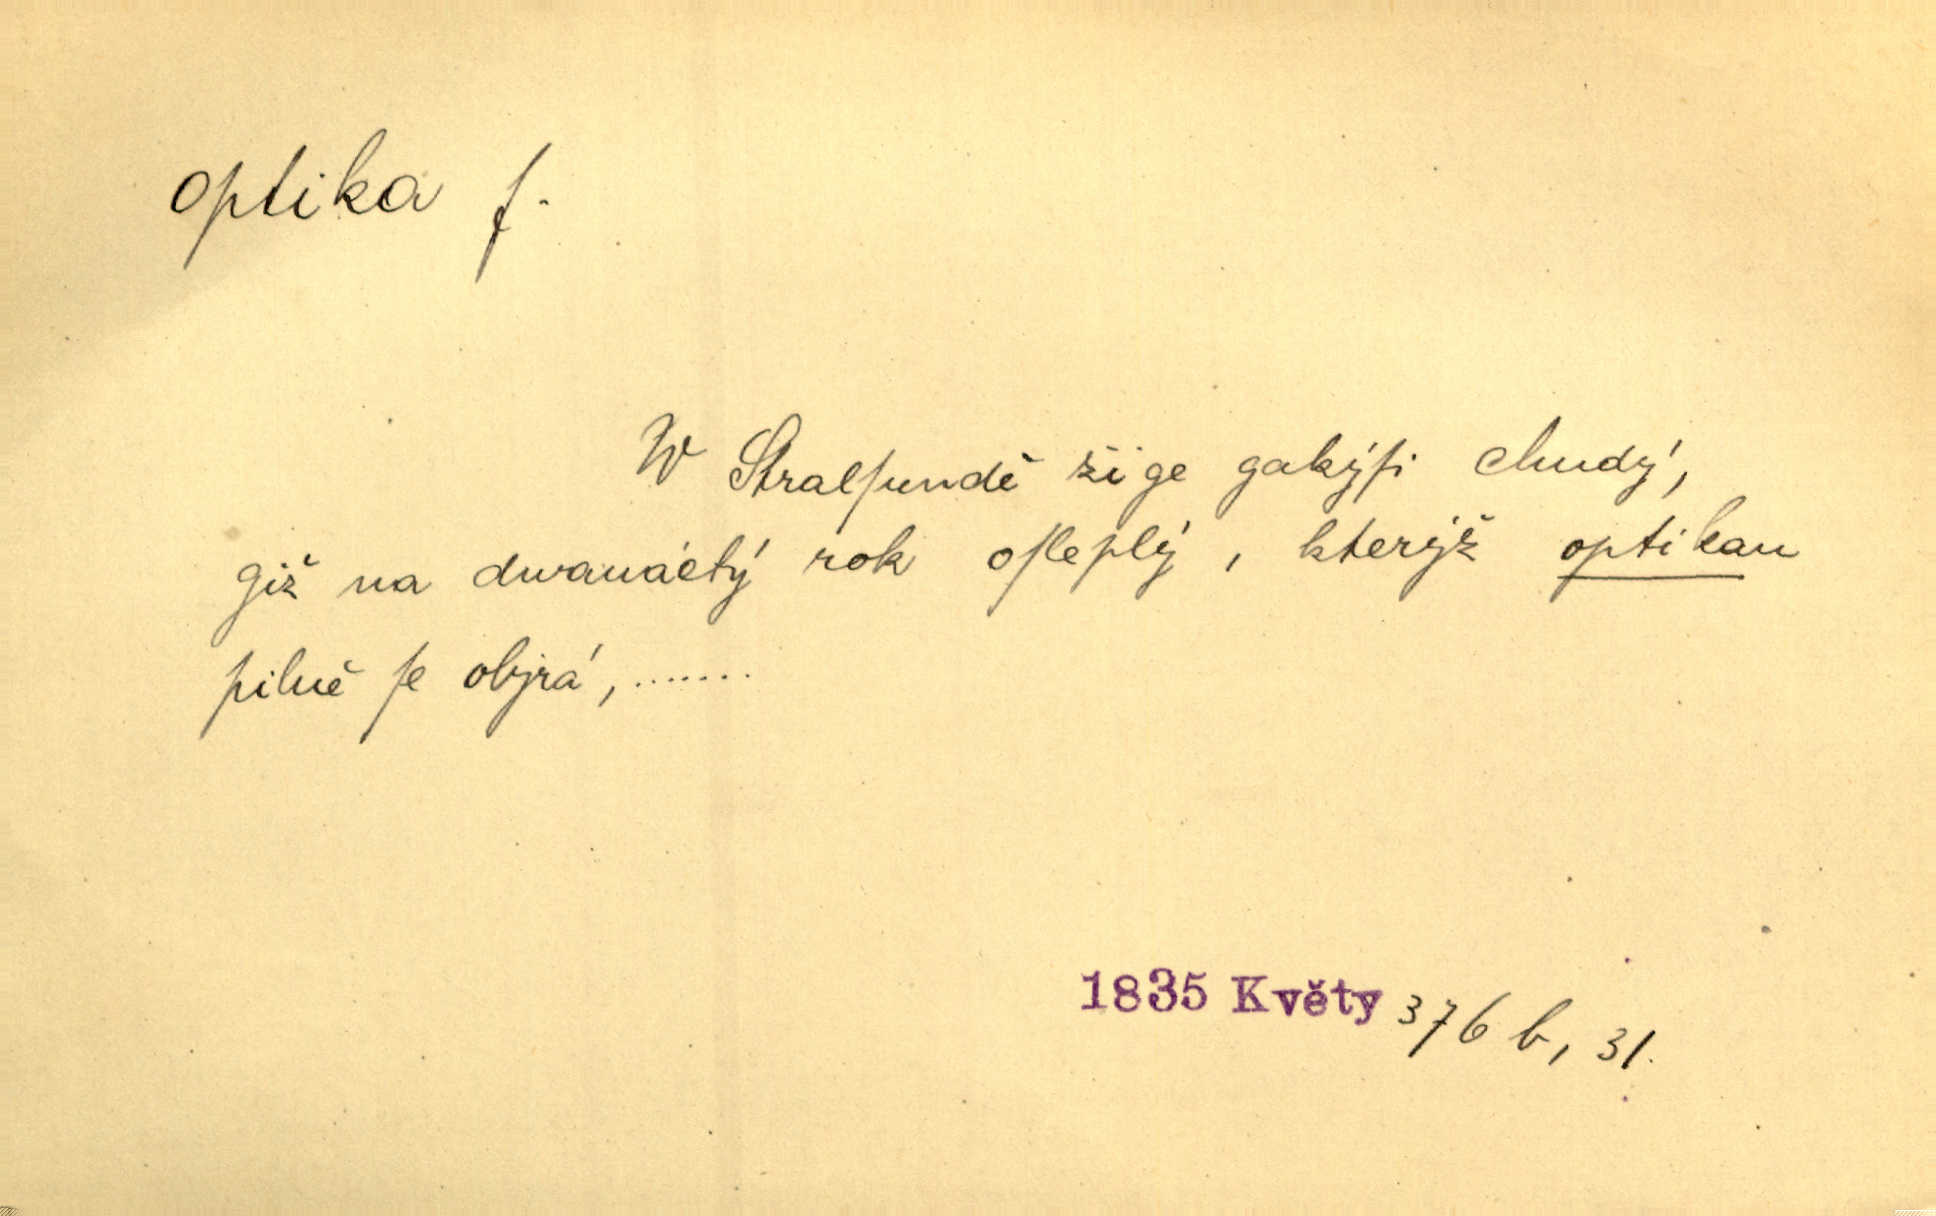 optika f.
W Stralſundě žige gakýſi chudý,
giž na dwanáctý rok oſleplý, kterýž optikau
pilně ſe objrá, .......
1835 Květy 376 b, 31.